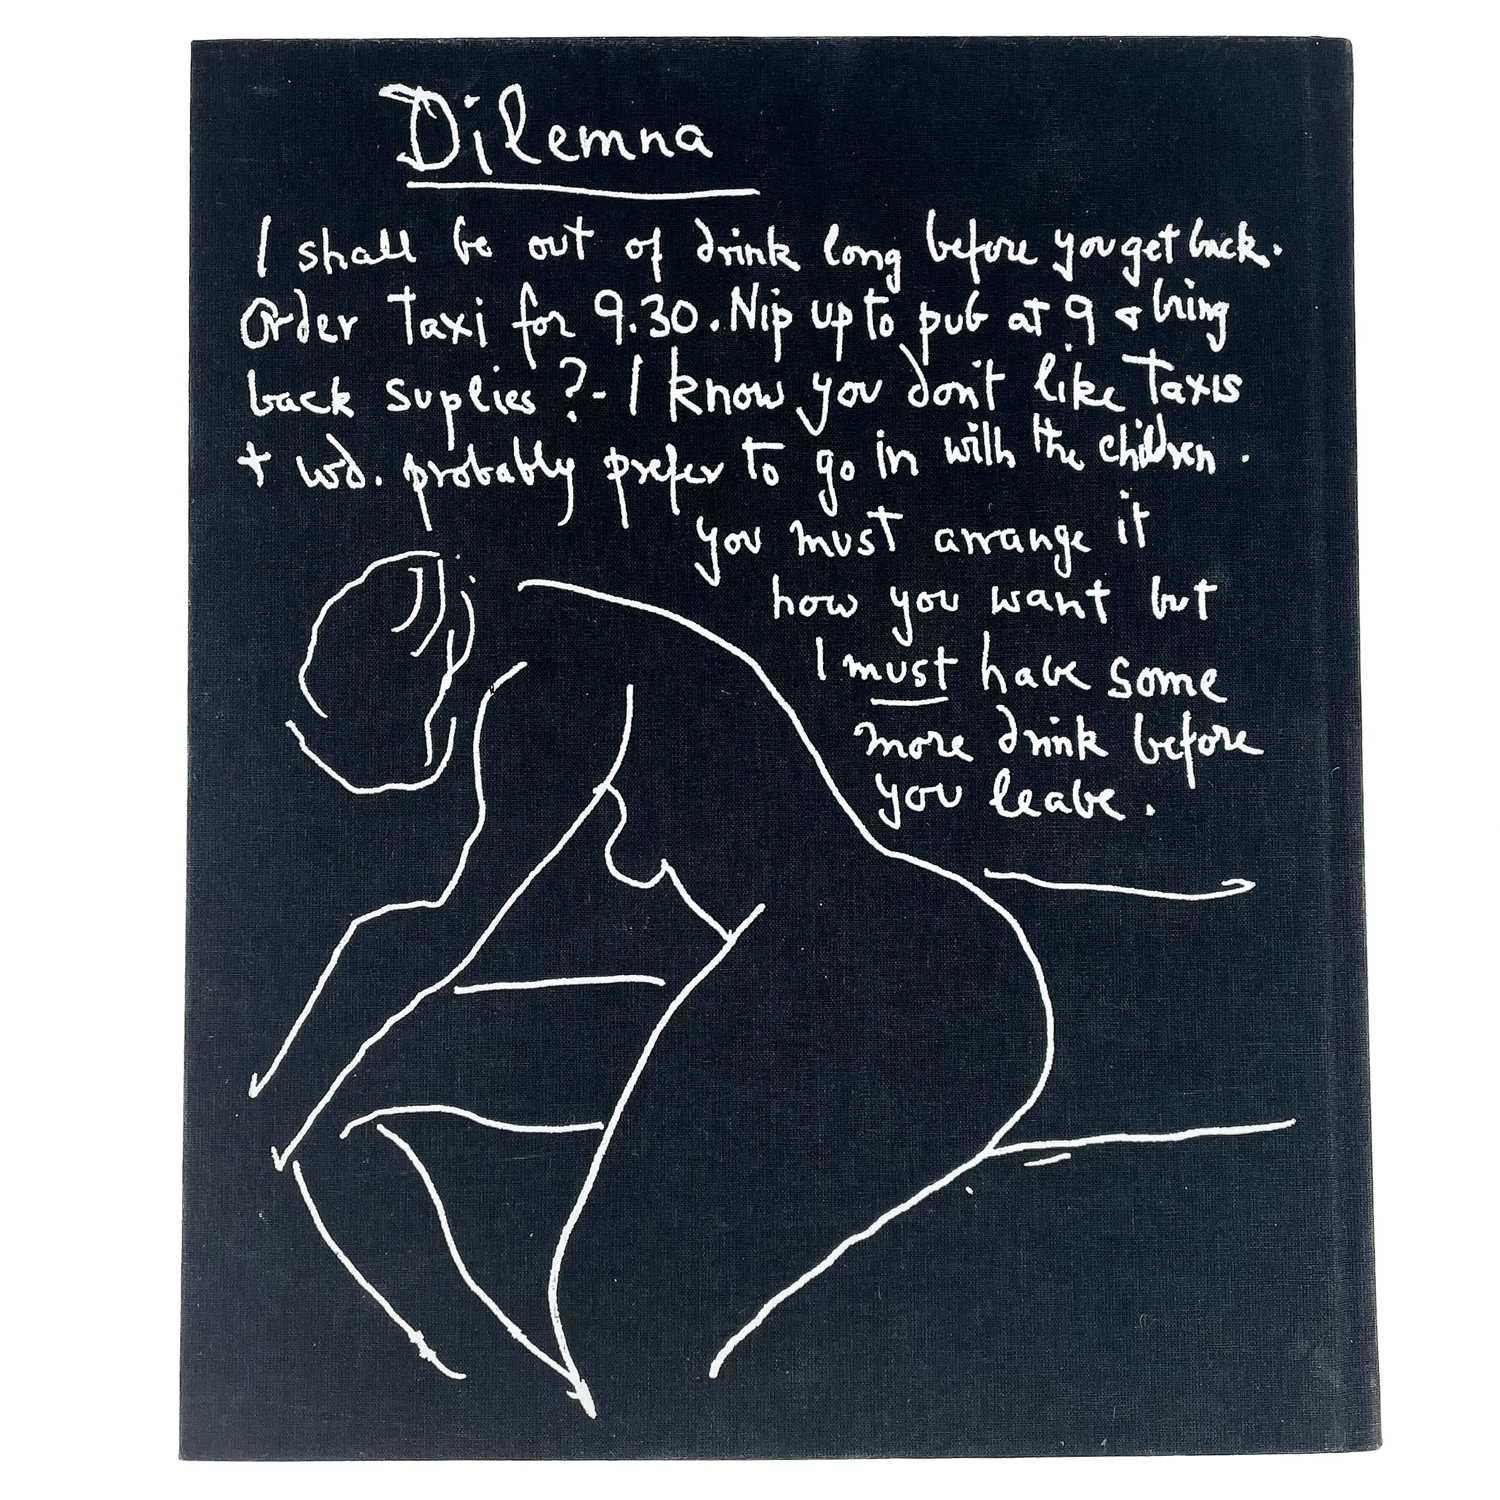 Dilemna
I shall be out of drink long before you get back.
Order Taxi for 9.30. Nip up to pub at 9 & bring
back suplies? - I know you don't like Taxis
+ wd. probably prefer to go in with the children.
you must arrange it
how you want but
I must have some
more drink before
you leave.